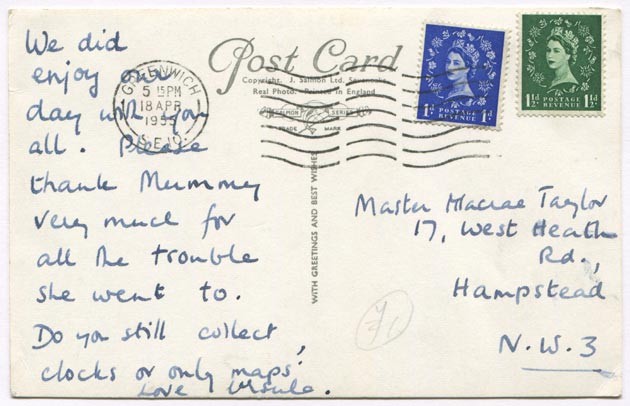 We did
enjoy our
day with you
all. Please
thank Mummy
very much for
all the trouble
she went to.
Do you still collect
clocks or only maps?
Love Ursula.
GREENWICH
5 15 PM
18 APR
195
S.E.10.
Post Card
Copyright. J. Salmon Ltd. Sevenoaks.
Real Photo. Printed in England
SALMON SERIES
TRADE MARK
WITH GREETINGS AND BEST WISHES
1d POSTAGE REVENUE 1d
1½d POSTAGE REVENUE 1½d
Master Macrae Taylor
17, West Heath
Rd.,
Hampstead
N.W.3